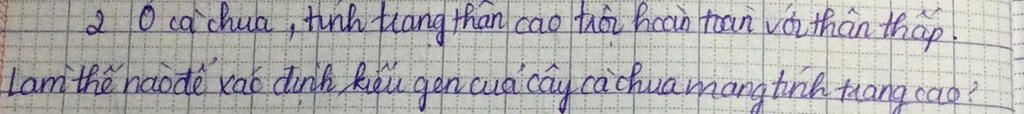 2 Ở cà chua, tính trạng thân cao trội hoàn toàn với thân thấp.
Làm thế nào để xác định kiểu gen của cây cà chua mang tính trạng cao?